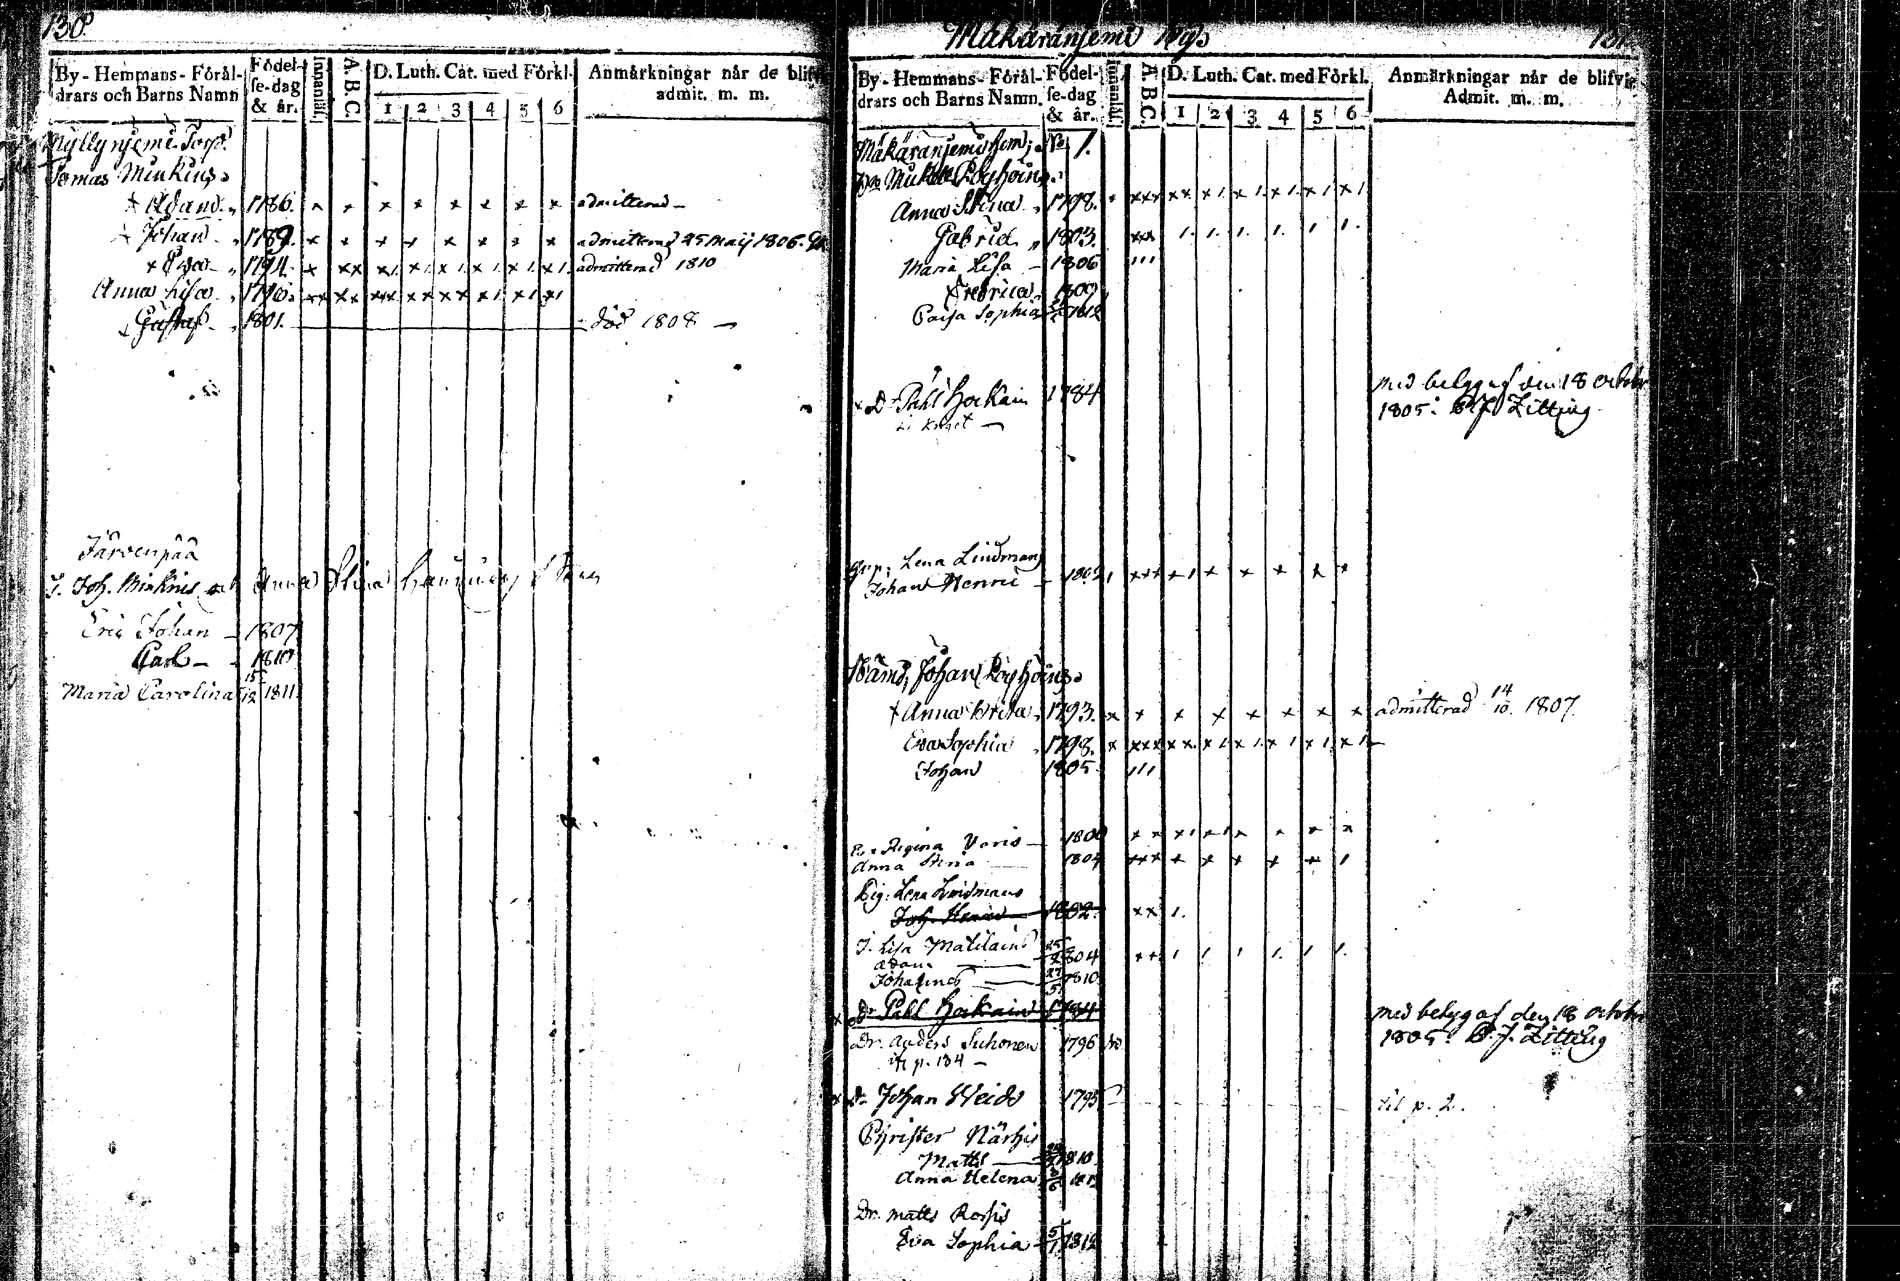 130.
By-Hemmans-Föräl-
drars och Barns Namn
Födel-
se-dag
& år.
Innanläs.
A.B.C.
D. Luth. Cat. med Förkl.
1 2 3 4 5 6
Anmärkningar når de blifvit
admit. m. m.
Myllynjemi Torp.
Tomas Minkins
Adam 1786. admitterad
Johan 1789. admitterad 25 Maij 1806.
Ewa 1794. admitterad 1810
Anna Lisa 1796.
Gustaf 1801. död 1808
Järvenpää
J. Joh. Minkins och Anna Stina
Eric Johan 1807
Carl 1810
Maria Carolina 15/12 1811.
Makaranjemi
131.
By-Hemmans-Föräl-
drars och Barns Namn.
Födel-
se-dag
& år.
Innanläs.
A.B.C.
D. Luth. Cat. med Förkl.
1 2 3 4 5 6
Anmärkningar når de blifvit
Admit. m. m.
Makaranjemi hem: No 1.
Röyhöins
Anna Stina 1798.
Gabriel 1803.
Maria Lisa 1806
Fredrica 1809
Caisa Sophia 1812
Dr Påhl Hockain 1784 med betyg af den 18 october
1805: Zitting
Lena Lindmans
Johan Henric 1802
Nämd: Johan Röyhöins
Anna Brita 1793. admitterad 14/10. 1807.
Eva Sophia 1798.
Johan 1805
Regina Voris 1800
Anna Stina 1804
Pig: Lena Lindmans
Joh. Henric 1802.
J. Lisa Matilains
Adam 1804
Johannes 27/5 1810
Dr Påhl Hockain 1784 med betyg af den 18 october
1805: Zitting
Dr. Anders Suhonen 1796
p. 134
Dr Johan Weids 1795 til p. 2.
Christer Närhis
Matts 1810.
Anna Helena
Dr. Matts Rossis
Eva Sophia 5/1 1812